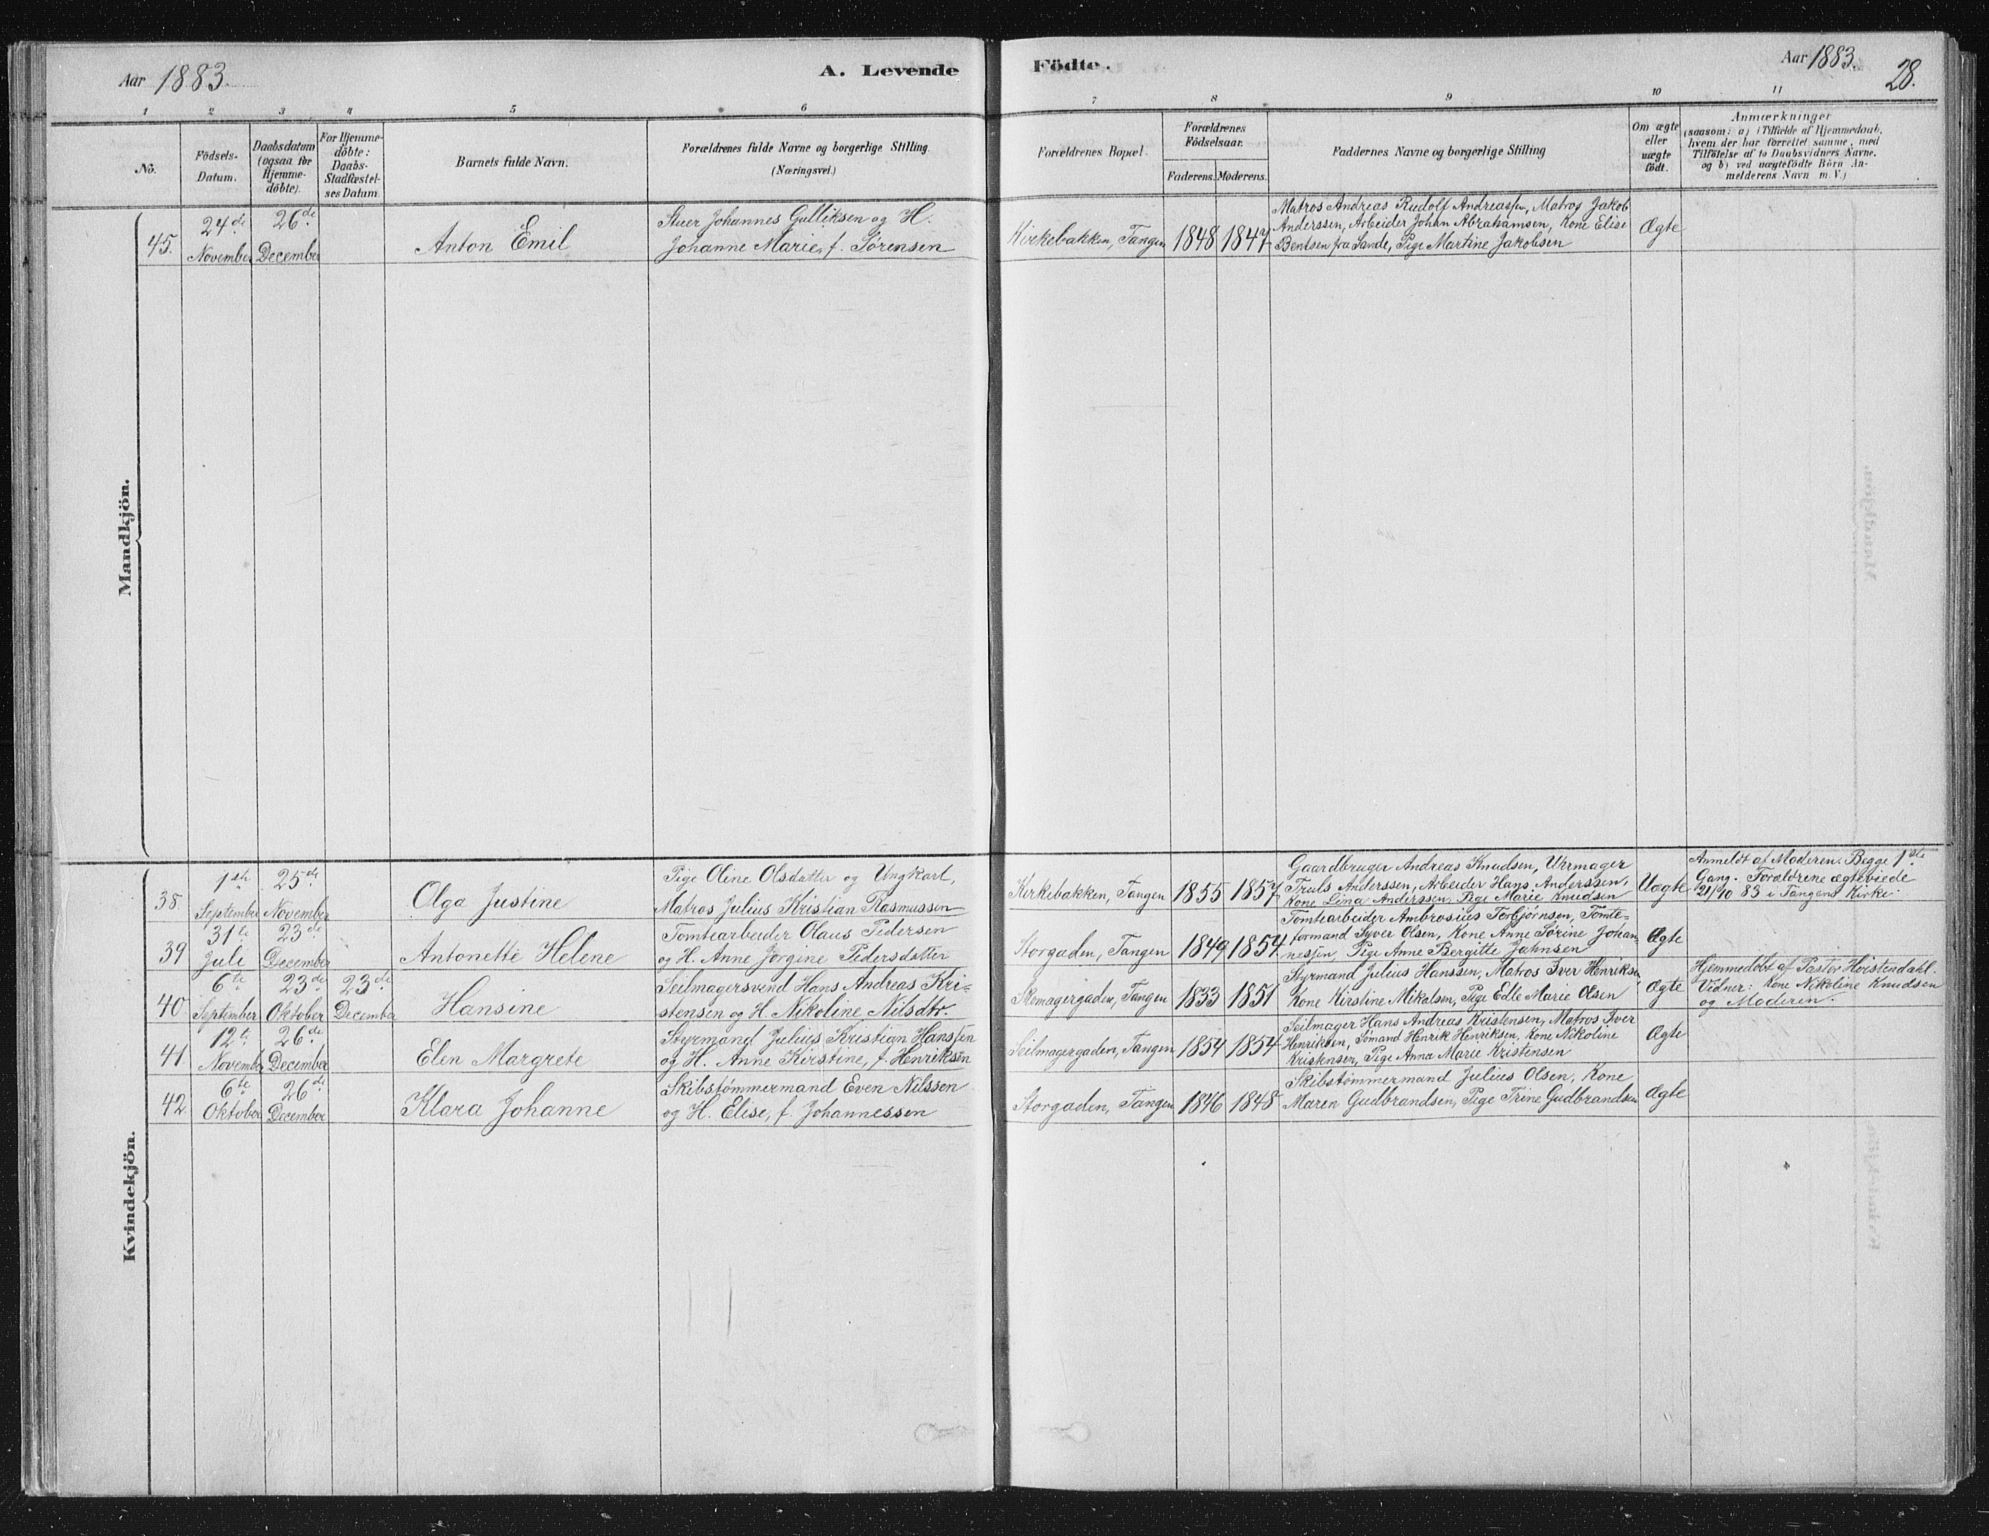 Aar 1883.
A. Levende
Födte.
Aar 1883.
28.
1 2 3 4 5 6 7 8 9 10 11
No.
Födsels-
Datum.
Daabsdatum
(ogsaa for
Hjemme-
döbte).
For Hjemme-
döbte:
Daabs-
Stadfæstel-
ses Datum.
Barnets fulde Navn.
Forældrenes fulde Navne og borgerlige Stilling
(Næringsvei.)
Forældrenes Bopæl.
Forældrenes
Födselsaar.
Faderens. Moderens.
Faddernes Navne og borgerlige Stilling
Om ægte
eller
uægte
födt.
Anmærkninger
(saasom: a) i Tilfælde af Hjemmedaab,
hvem der har forrettet samme, med
Tilföielse af to Daabsvidners Navne.
og b) ved uægtefödte Börn An-
melderens Navn m. V.)
Mandkjön.
45.
24de
November
26de
December
Anton Emil
Stuer Johannes Gulliksen og H.
Johanne Marie, f. Sørensen
Kirkebakken, Tangen
1848 1847
Matros Andreas Rudolf Andreassen, Matros Jakob
Anderssen, Arbeider Johan Abrahamsen, Kone Elise
Bentsen fra Sande, Pige Martine Jakobsen
Ægte
Kvindekjön.
38.
1ste
September
25de
November
Olga Justine
Pige Oline Olsdatter og Ungkarl,
Matros Julius Kristian Rasmussen
Kirkebakken, Tangen
1855 1857
Gaardbruger Andreas Knudsen, Urrmager
Truls Anderssen, Arbeider Hans Anderssen,
Kone Lina Anderssen, Pige Marie Knudsen
Uægte
Anmeldt af Moderen. Begge 1ste
Gang. Forældrene ægteviede
21/10 83 i Tangens Kirke.
39
31te
Juli
23de
December
Antonette Helene
Tomtearbeider Olaus Pedersen
og H. Anne Jørgine Pedersdatter
Storgaden, Tangen
1849 1854
Tomtearbeider Ambrosius Torbjørnsen, Tomte-
formand Syver Olsen, Kone Anne Sørine Johan
nessen, Pige Anne Bergitte Jahnsen
Ægte
40
6te
September
23de
Oktober
23de
December
Hansine
Seilmagersvend Hans Andreas Kri-
stensen og H. Nikoline Nilsdtr.
Skomagergaden, Tangen
1833 1851
Styrmand Julius Hanssen, Matros Iver Henriksen
Kone Kirstine Mikalsen, Pige Edle Marie Olsen
Ægte
Hjemmedøbt af Pastor Hoistendahl.
Vidner: Kone Nikoline Knudsen
og Moderen.
41
12te
November
26de
December
Elen Margrete
Styrmand Julius Kristian Hanssen
og H. Anne Kirstine, f. Henriksen
Seilmagergaden, Tangen
1854 1854
Seilmager Hans Andreas Kristensen, Matros Iver
Henriksen, Sømand Henrik Henriksen, Kone Nikoline
Kristensen, Pige Anna Marie Kristensen
Ægte
42
6te
Oktober
26de
December
Klara Johanne
Skibstømmermand Even Nilssen
og H. Elise, f. Johannessen
Storgaden, Tangen
1846 1848
Skibstømmermand Julius Olsen, Kone
Maren Gudbrandsen, Pige Trine Gudbrandsen
Ægte